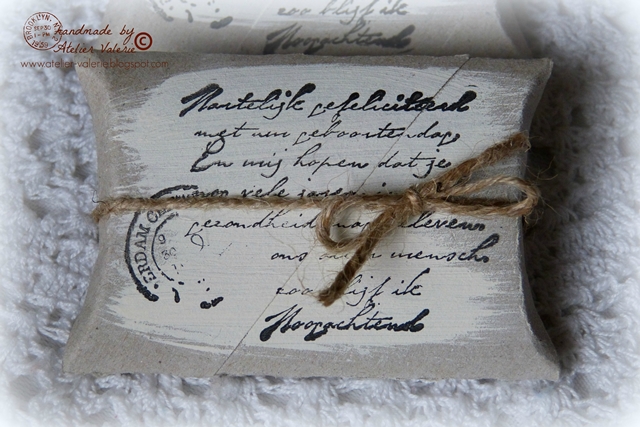 handmade by
Atelier Valerie ©
www.atelier-valerie.blogspot.com
BROOKLYN, N.Y.
SEP 30
1-PM
zoo blijf ik
Hoogachtend
Hartelijk gefeliciteerd
met uw geboortendag,
En wij hopen dat je
nog vele jaren in
gezondheid mag
ons allen mensch,
zoo blijf ik
Hoogachtend
ERDAM C